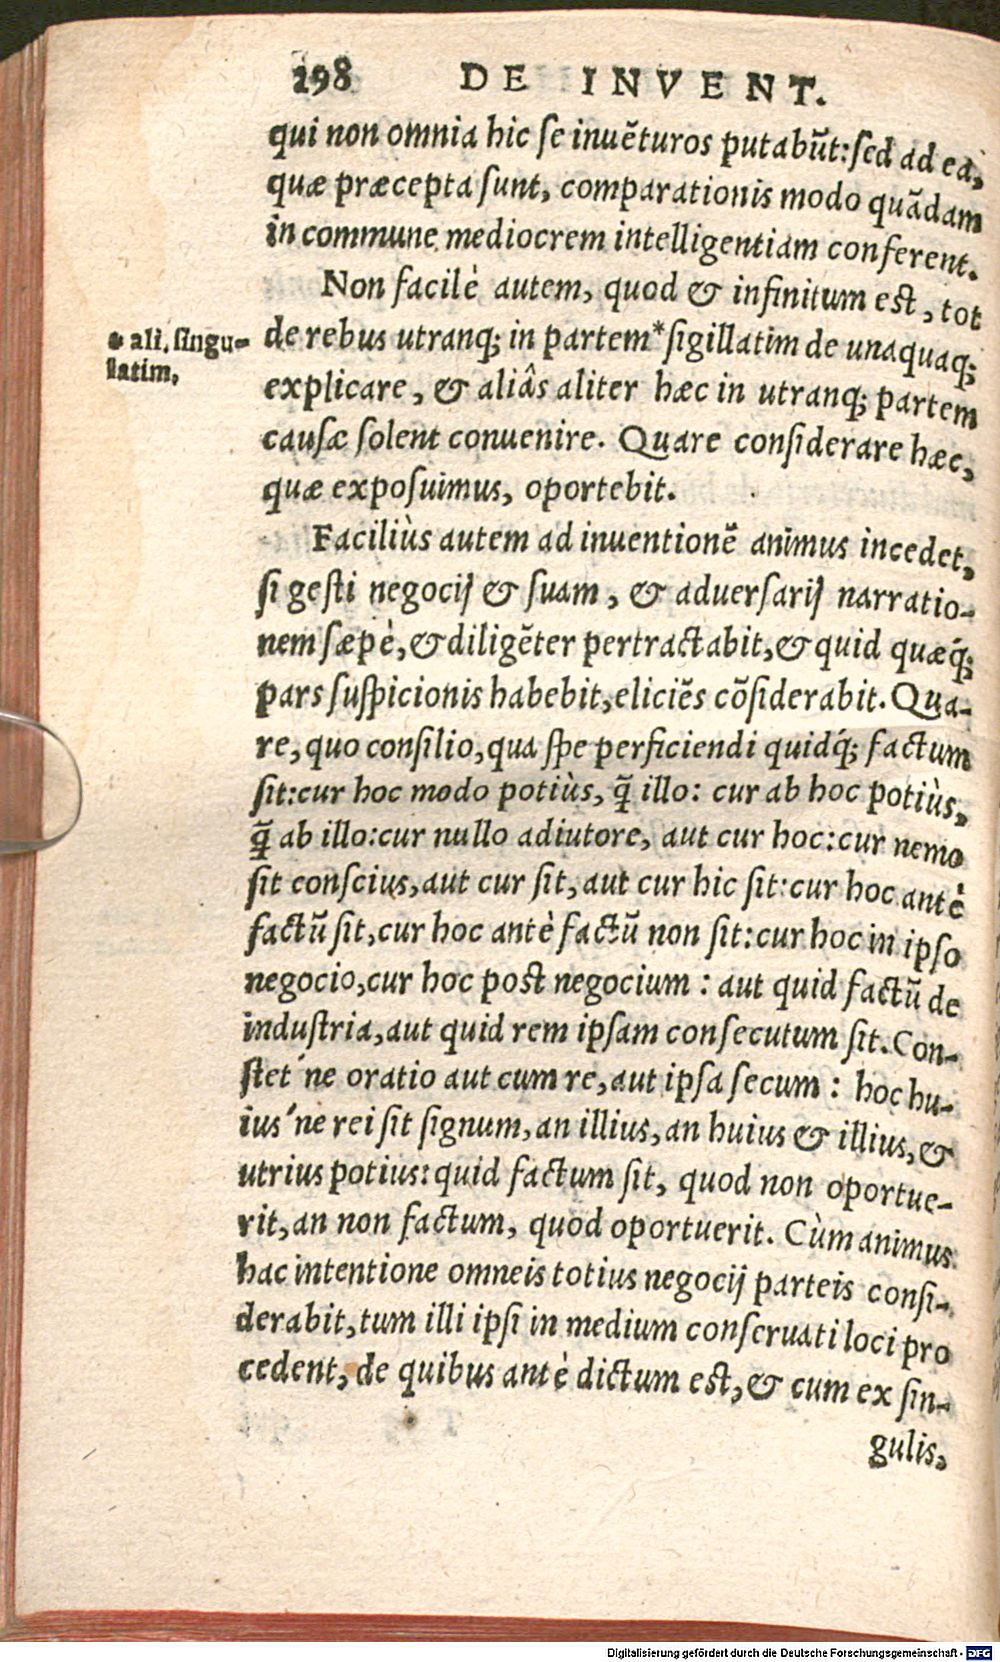 198 DE INVENT.
qui non omnia hic se inuẽturos putabũt: sed ad ea,
quæ præcepta sunt, comparationis modo quãdam
in commune mediocrem intelligentiam conferent.
Non facilè autem, quod & infinitum est, tot
* ali. singu-
latim.
de rebus utranq; in partem * sigillatim de unaquaq;
explicare, & aliâs aliter hæc in utranq; partem
causæ solent conuenire. Quare considerare hæc,
quæ exposuimus, oportebit.
Faciliùs autem ad inuentionẽ animus incedet,
si gesti negocij & suam, & aduersarij narratio-
nem sæpè, & diligẽter pertractabit, & quid quæq́;
pars suspicionis habebit, eliciẽs cõsiderabit. Qua-
re, quo consilio, qua spe perficiendi quidq́; factum
sit: cur hoc modo potiùs, q̃ illo: cur ab hoc potiùs,
q̃ ab illo: cur nullo adiutore, aut cur hoc: cur nemo
sit conscius, aut cur sit, aut cur hic sit: cur hoc antè
factũ sit, cur hoc antè factũ non sit: cur hoc in ipso
negocio, cur hoc post negocium: aut quid factũ de
industria, aut quid rem ipsam consecutum sit. Con-
stet'ne oratio aut cum re, aut ipsa secum: hoc hu-
ius'ne rei sit signum, an illius, an huius & illius, &
utrius potius: quid factum sit, quod non oportue-
rit, an non factum, quod oportuerit. Cùm animus
hac intentione omneis totius negocij parteis consi-
derabit, tum illi ipsi in medium conseruati loci pro
cedent, de quibus antè dictum est, & cum ex sin-
gulis,
Digitalisierung gefördert durch die Deutsche Forschungsgemeinschaft - DFG